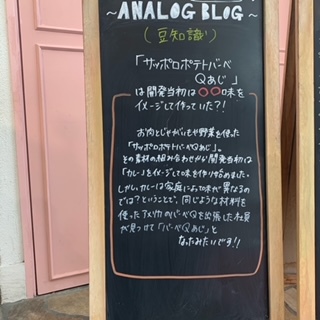 ~ANALOG BLOG~
(豆知識)
「サッポロポテトバーベ
Qあじ」
は開発当初は〇〇味を
イメージして作っていた?!
お肉とじゃがいもや野菜を使った
「サッポロポテトバーベQあじ」。
その素材の組み合わせから開発当初は
「カレー」をイメージして味を作り始めました。
しかし、カレーは家庭によって味が異なるの
では?ということで、同じような材料を
使ったアメリカのバーベQを出張した社員
が見つけて「バーベQあじ」と
なったみたいです!!